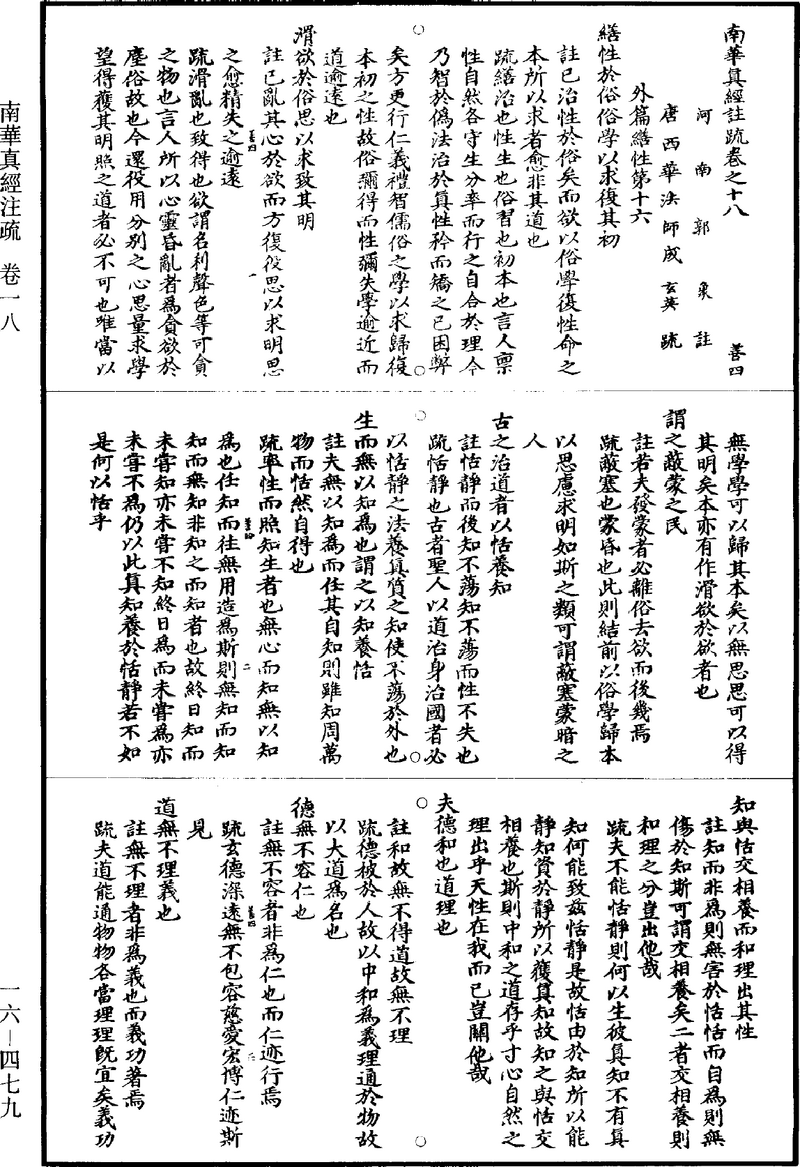 南華真經注疏　卷一八
一六—四七九
南華真經註疏卷之十八
善四
河南郭象註
唐西華法師成玄英疏
外篇繕性第十六
繕性於俗俗學以求復其初
註已治性於俗矣而欲以俗學復性命之
本所以求者愈非其道也
疏繕治也性生也俗習也初本也言人禀
性自然各守生分率而行之自合於理今
乃智於偽法治於真性矜而矯之已困弊
矣方更行仁義禮智儒俗之學以求歸復
本初之性故俗彌得而性彌失學逾近而
道逾遠也
滑欲於俗思以求致其明
註已亂其心於欲而方復役思以求明思
之愈精失之逾遠
疏滑亂也致得也欲謂名利聲色等可貪
之物也言人所以心靈昏亂者為貪欲於
塵俗故也今還役用分別之心思量求學
望得獲其明照之道者必不可也唯當以
善四
一
無學學可以歸其本矣以無思思可以得
其明矣本亦有作滑欲於欲者也
謂之蔽蒙之民
註若夫發蒙者必離俗去欲而後幾焉
疏蔽塞也蒙昏也此則結前以俗學歸本
以思慮求明如斯之類可謂蔽塞蒙暗之
人
古之治道者以恬養知
註恬靜而後知不蕩知不蕩而性不失也
疏恬靜也古者聖人以道治身治國者必
以恬靜之法養真質之知使不蕩於外也
生而無以知為也謂之以知養恬
註夫無以知為而任其自知則雖知周萬
物而恬然自得也
疏率性而照知生者也無心而知無以知
為也任知而往無用造為斯則無知而知
知而無知非知之而知者也故終日知而
未嘗知亦未嘗不知終日為而未嘗為亦
未嘗不為仍以此真知養於恬靜若不如
是何以恬乎
善四
二
知與恬交相養而和理出其性
註知而非為則無害於恬恬而自為則無
傷於知斯可謂交相養矣二者交相養則
和理之分豈出他哉
疏夫不能恬靜則何以生彼真知不有真
知何能致茲恬靜是故恬由於知所以能
靜知資於靜所以獲真知故知之與恬交
相養也斯則中和之道存乎寸心自然之
理出乎天性在我而已豈關他哉
夫德和也道理也
註和故無不得道故無不理
疏德被於人故以中和為義理通於物故
以大道為名也
德無不容仁也
註無不容者非為仁也而仁迹行焉
疏玄德深遠無不包容慈愛宏博仁迹斯
見
道無不理義也
註無不理者非為義也而義功著焉
疏夫道能通物物各當理理既宜矣義功
善四
三